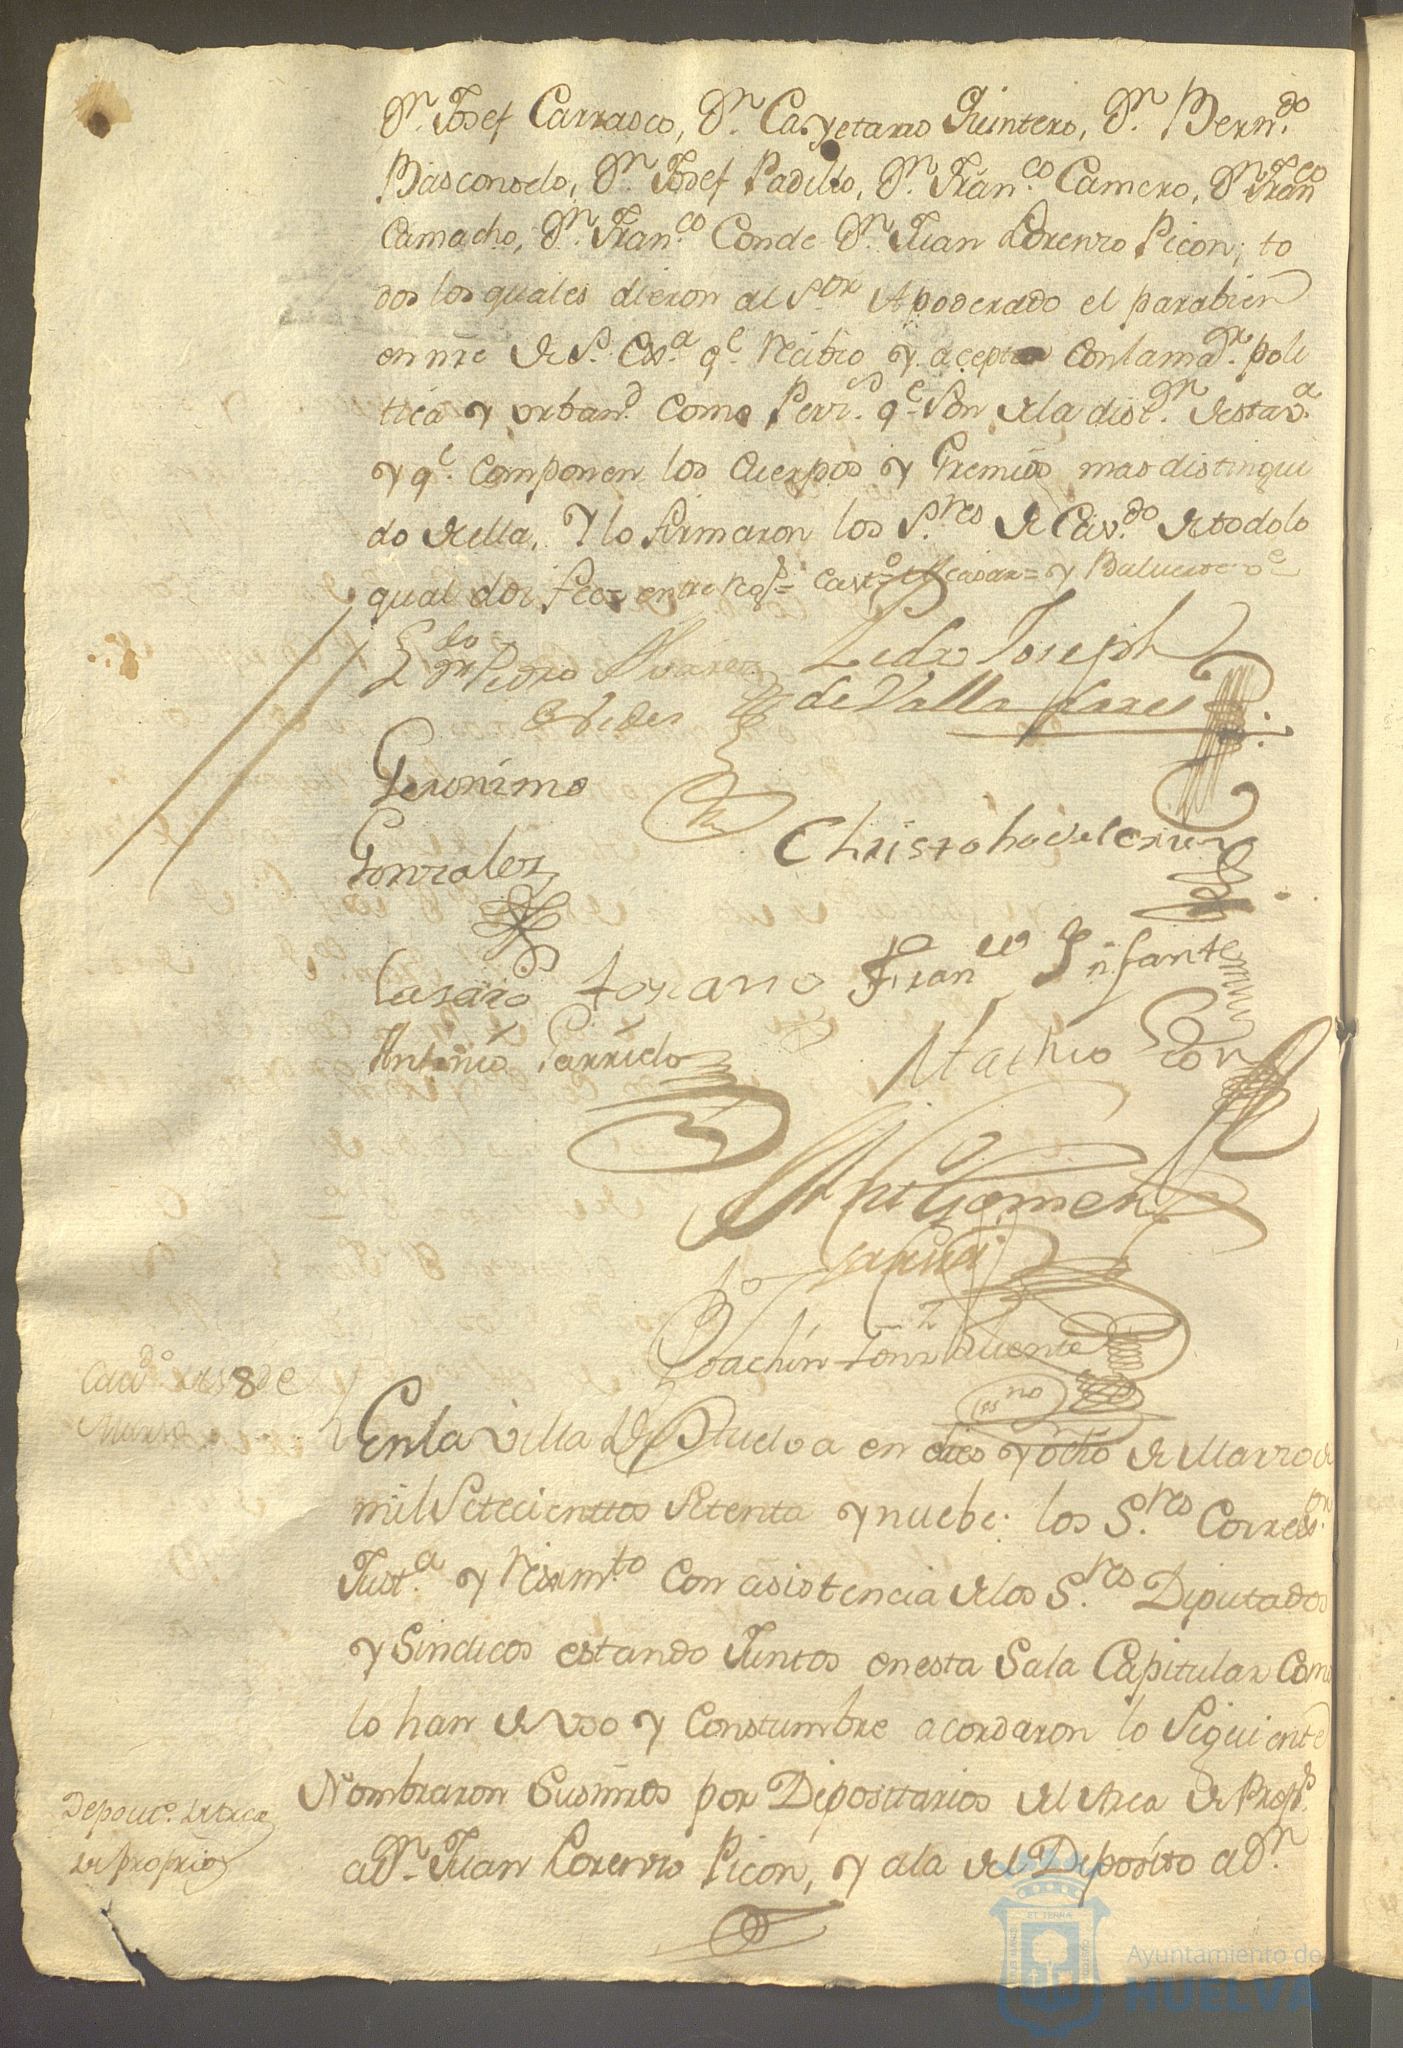 Dn. Josef Carrasco, Dn. Cayetano Quintero, Dn. Berndo.
Basconselo, Dn. Josef Padilla, Dn. Franco. Camero, Dn. Franco
Camacho, Dn. Franco. Conde Dn. Juan Lorenzo Picon; to
dos los quales dieron al Sor. Apoderado el parabien
en nre de S. Exa. qe. recibio y acepto con la mar. poli
tica y urband. como Pers. qe. son de la distn. de esta va.
y qe. componen los cuerpos y Gremios mas distingui
do de ella. Y lo firmaron los Sres de Cav.do de todo lo
qual doi fee= entre rengs=
Ldo Dn Pedro Alvarez
Lcdo Joseph
de Valladares
Geronimo
Gonzalez
Christobal
Lazaro Toscano
Franco Infante
Antonio Garrido
Matheo
Ant Gomez
Garcia
Joachin
Fuente
essno
Cavdo. de 18 de
Marzo
En la Villa de Huelva en dies y ocho de Marzo de
mil setecienttos setenta y nuebe: los S.res Correxor.
Justa. y Reximto con asistencia de los S.res Diputados
y Sindicos estando Juntos en esta Sala Capitular como
lo han de uso y Constumbre acordaron lo siguiente
Nombraron Sus mrds por Diposittarios del Arca de Props.
a Dn. Juan Lorenzo Picon, y a la del Deposito a Dn
Deposito. del Arca
de proprios
Ayuntamiento de
HUELVA